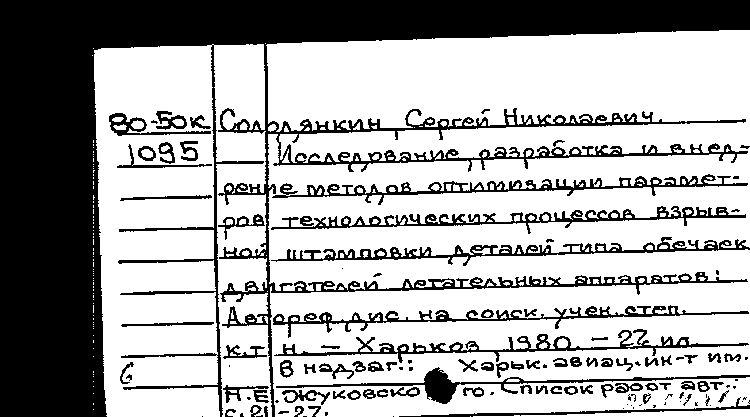 80-50к Солодянкин, Сергей Николаевич.
1095 Исследование, разработка и внед-
рение методов оптимизации парамет-
ров технологических процессов взрыв-
ной штамповки деталей типа обечаек
двигателей летательных аппаратов:
Автореф. дис. на соиск. учен. степ.
к.т.н. – Харьков, 1980. – 22, ил.
6 В надзаг.: Харьк. авиац. ин-т им.
Н.Е. Жуковского. Список работ авт.:
с. 21-22.